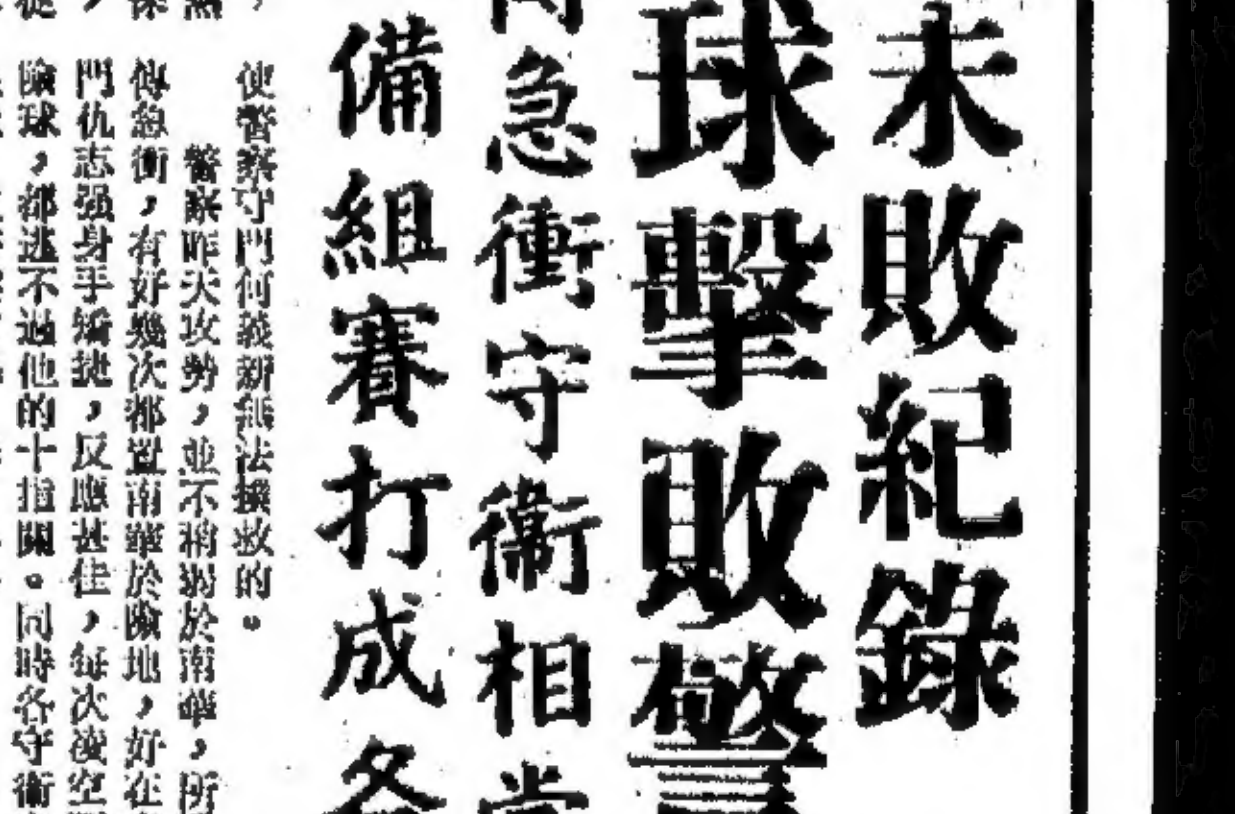 未敗紀錄
球擊敗警
急衝守衞相當
備組賽打成各
使警察守門何義新無法撲救的。
警察昨天攻勢，並不稍弱於南華，所
傳急衝，有好幾次都置南華於險地，好在
門仇志强身手矯捷，反應甚佳，每次凌空
險球，都逃不過他的十指關。同時各守衞